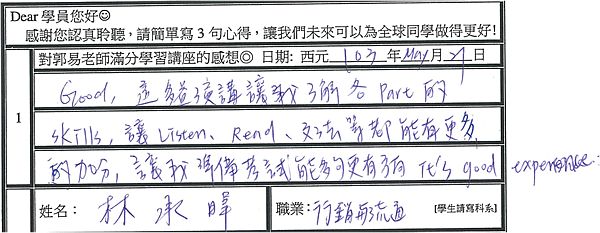 Dear 學員您好☺
感謝您認真聆聽，請簡單寫 3 句心得，讓我們未來可以為全球同學做得更好!
對郭易老師滿分學習講座的感想◎ 日期: 西元 103 年 May 月 21 日
1
Good, 這趟演講讓我了解各 Part 的
skills, 讓 Listen、Read、文法等都能有更多
的加分, 讓我準備考試能夠更有方向 It's good experience.
姓名: 林承暐
職業: 行銷與流通 [學生請寫科系]